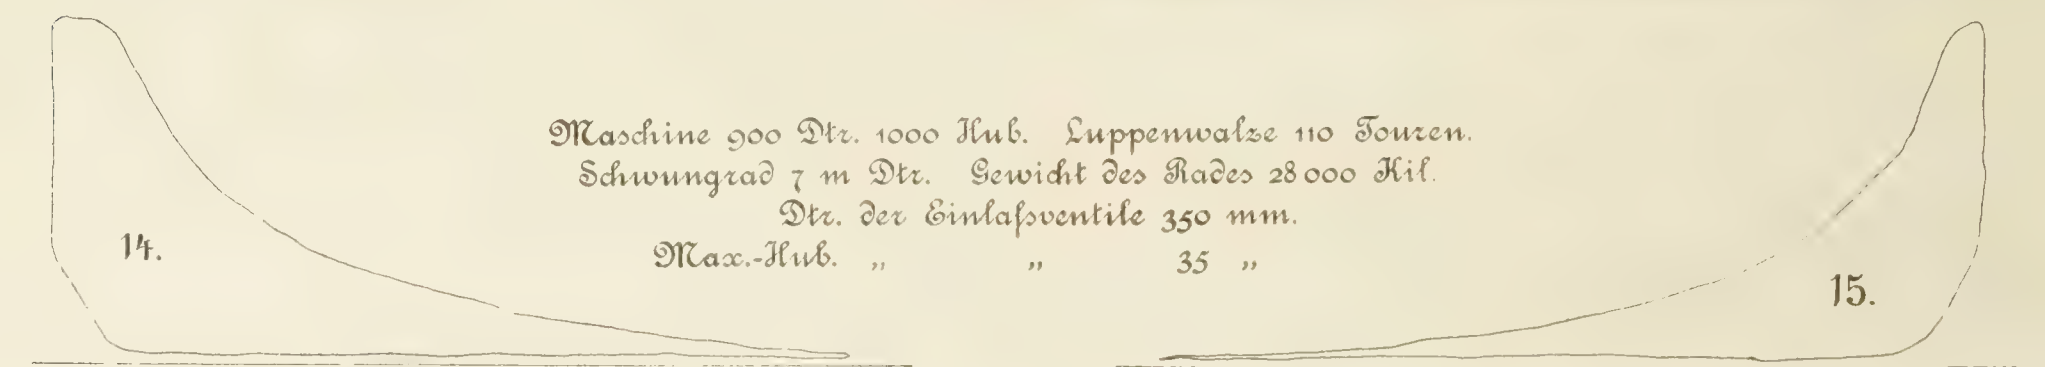 Maschine 900 Dtr. 1000 Hub. Luppenwalze 110 Touren.
Schwungrad 7 m Dtr. Gewicht des Rades 28 000 Kil.
Dtr. der Einlaßventile 350 mm.
14.
Max.-Hub. „ „ 35 „
15.